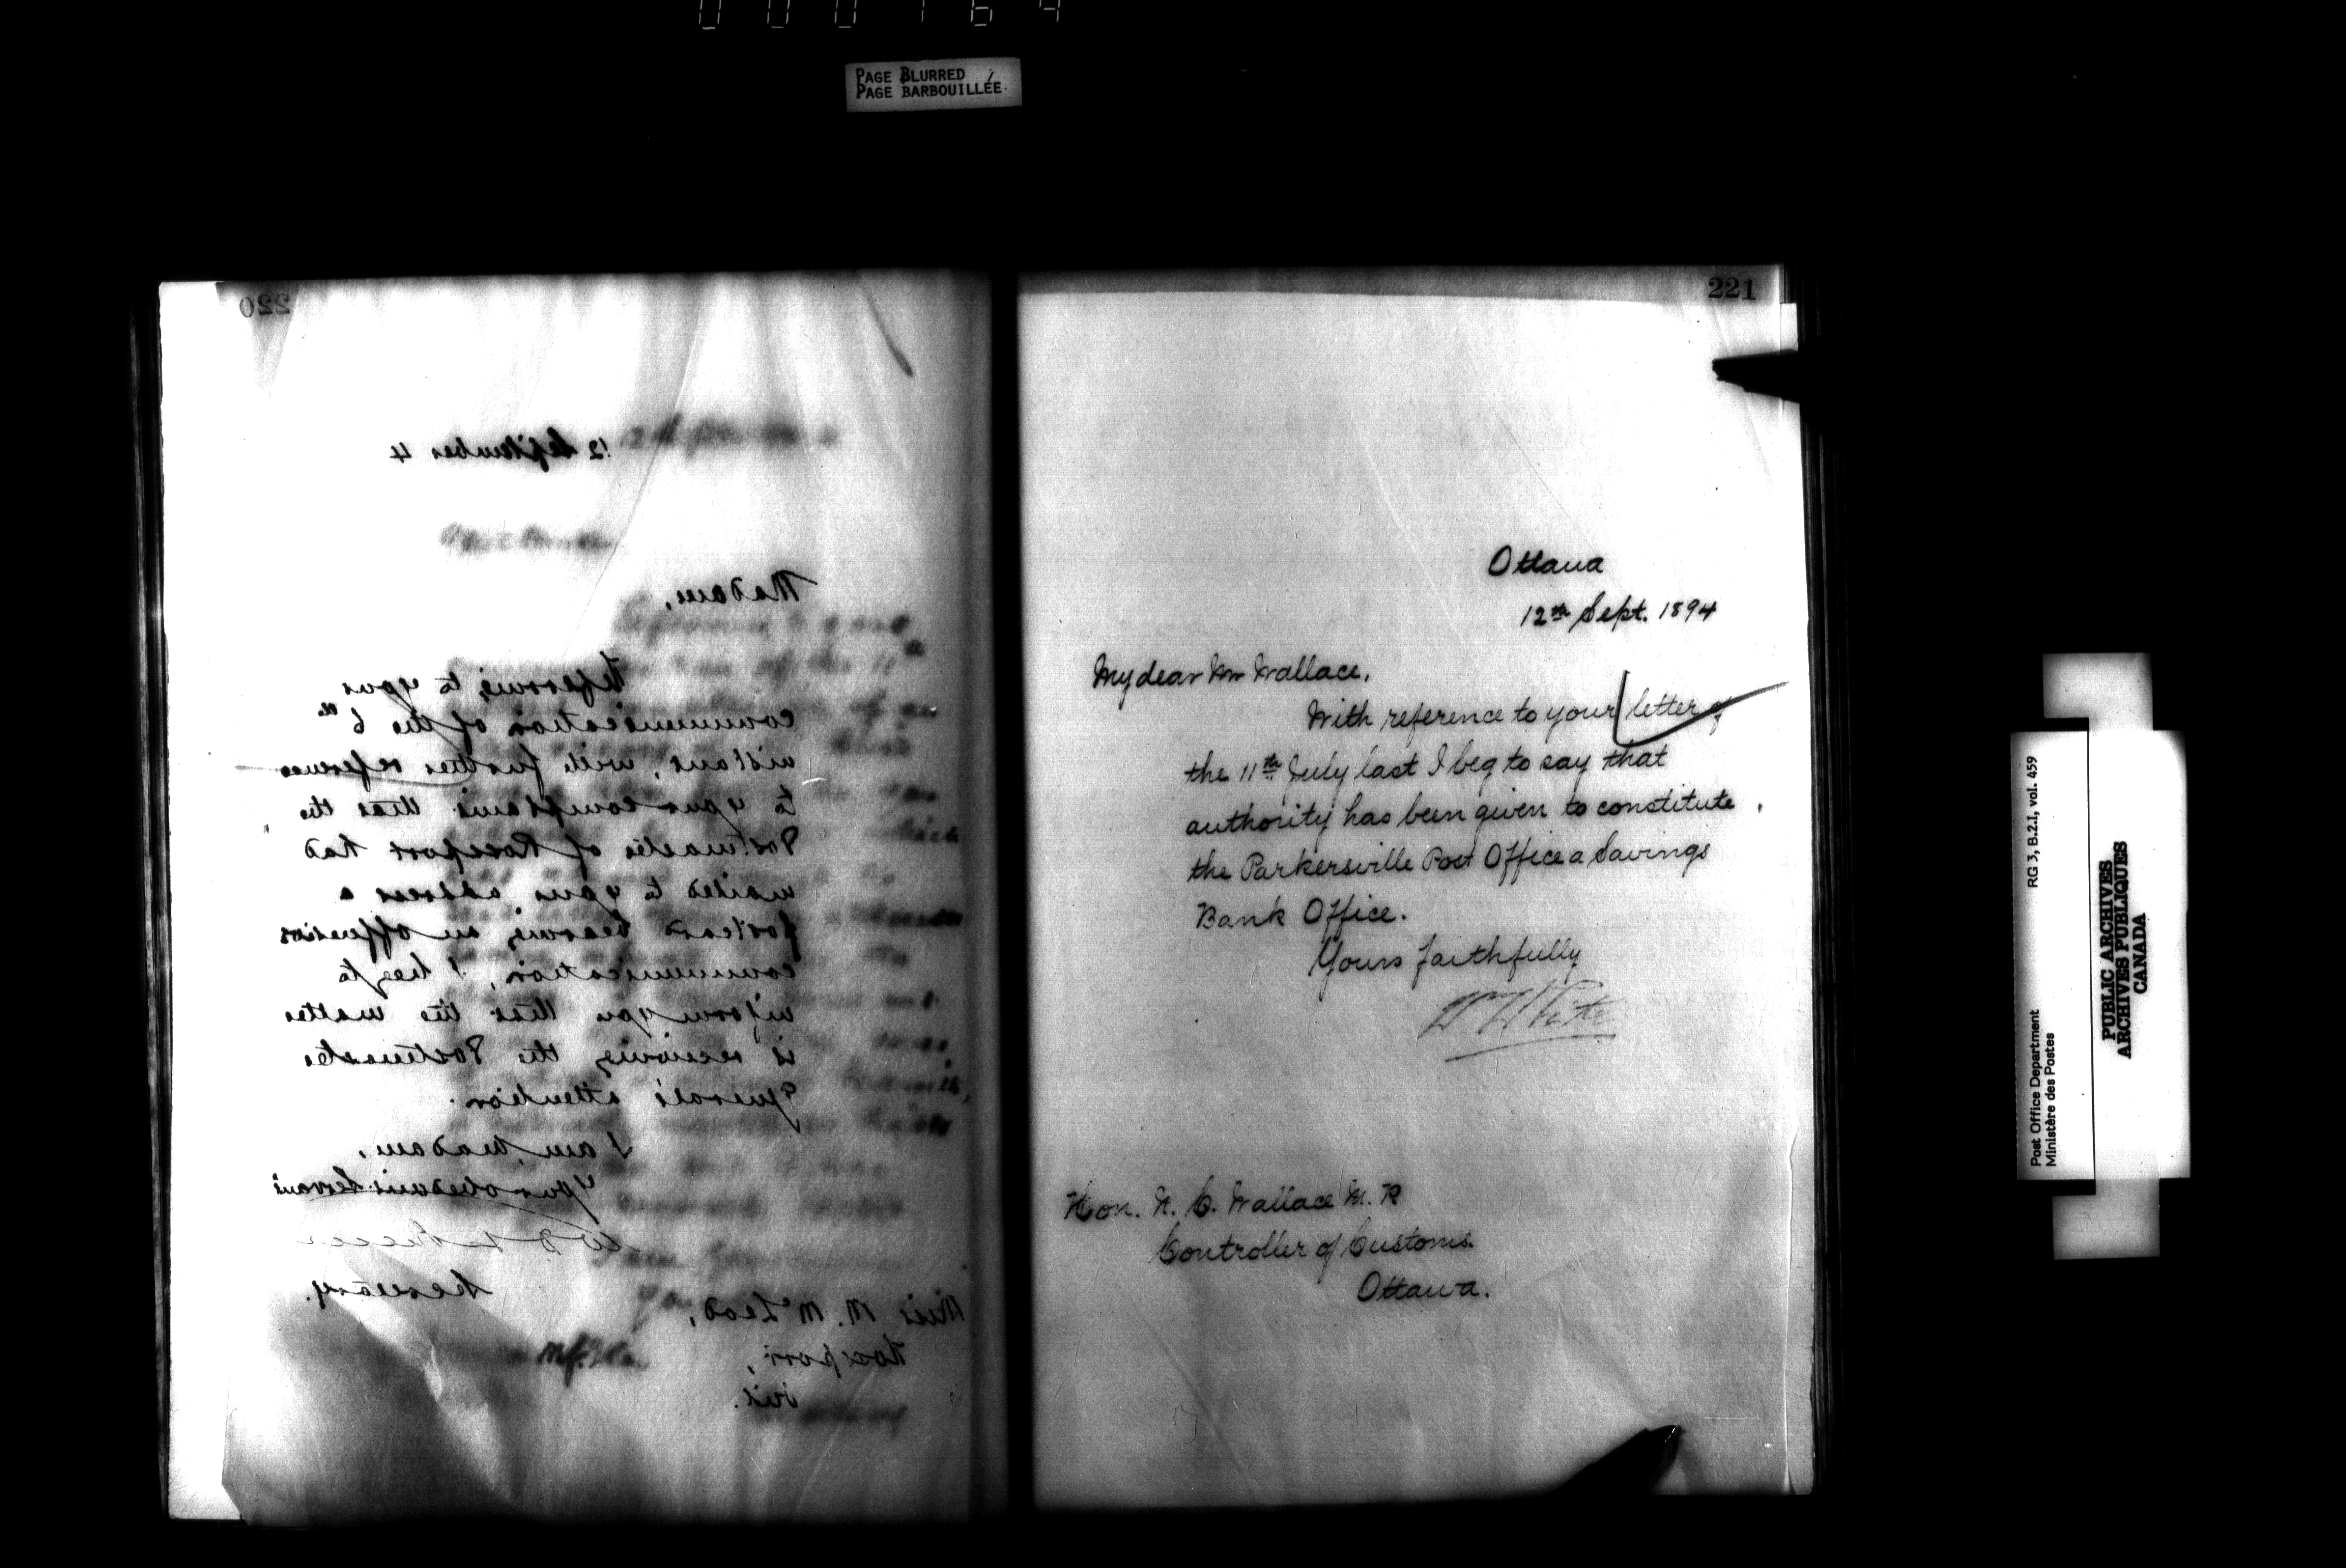 PAGE BLURRED
PAGE BARBOUILLÉE
220
12 September 4
Madam,
Referring to your
communication of the 6th
instant, with further reference
to your complaint that the
Postmaster of Rockport had
mailed to your address a
postcard bearing an offensive
communication, I beg to
inform you that the matter
is receiving the Postmaster
General's attention.
I am, Madam,
Your obedient Servant
Secretary.
Miss M. McLeod,
Ont.
221
Ottawa
12th Sept. 1894
My dear Mr Wallace,
With reference to your letter of
the 11th July last I beg to say that
authority has been given to constitute
the Parkersville Post Office a Savings
Bank Office.
Yours faithfully
W White
Hon. N. C. Wallace M. P.
Controller of Customs.
Ottawa.
RG 3, B.2.I, vol. 459
Post Office Department
Ministère des Postes
PUBLIC ARCHIVES
ARCHIVES PUBLIQUES
CANADA